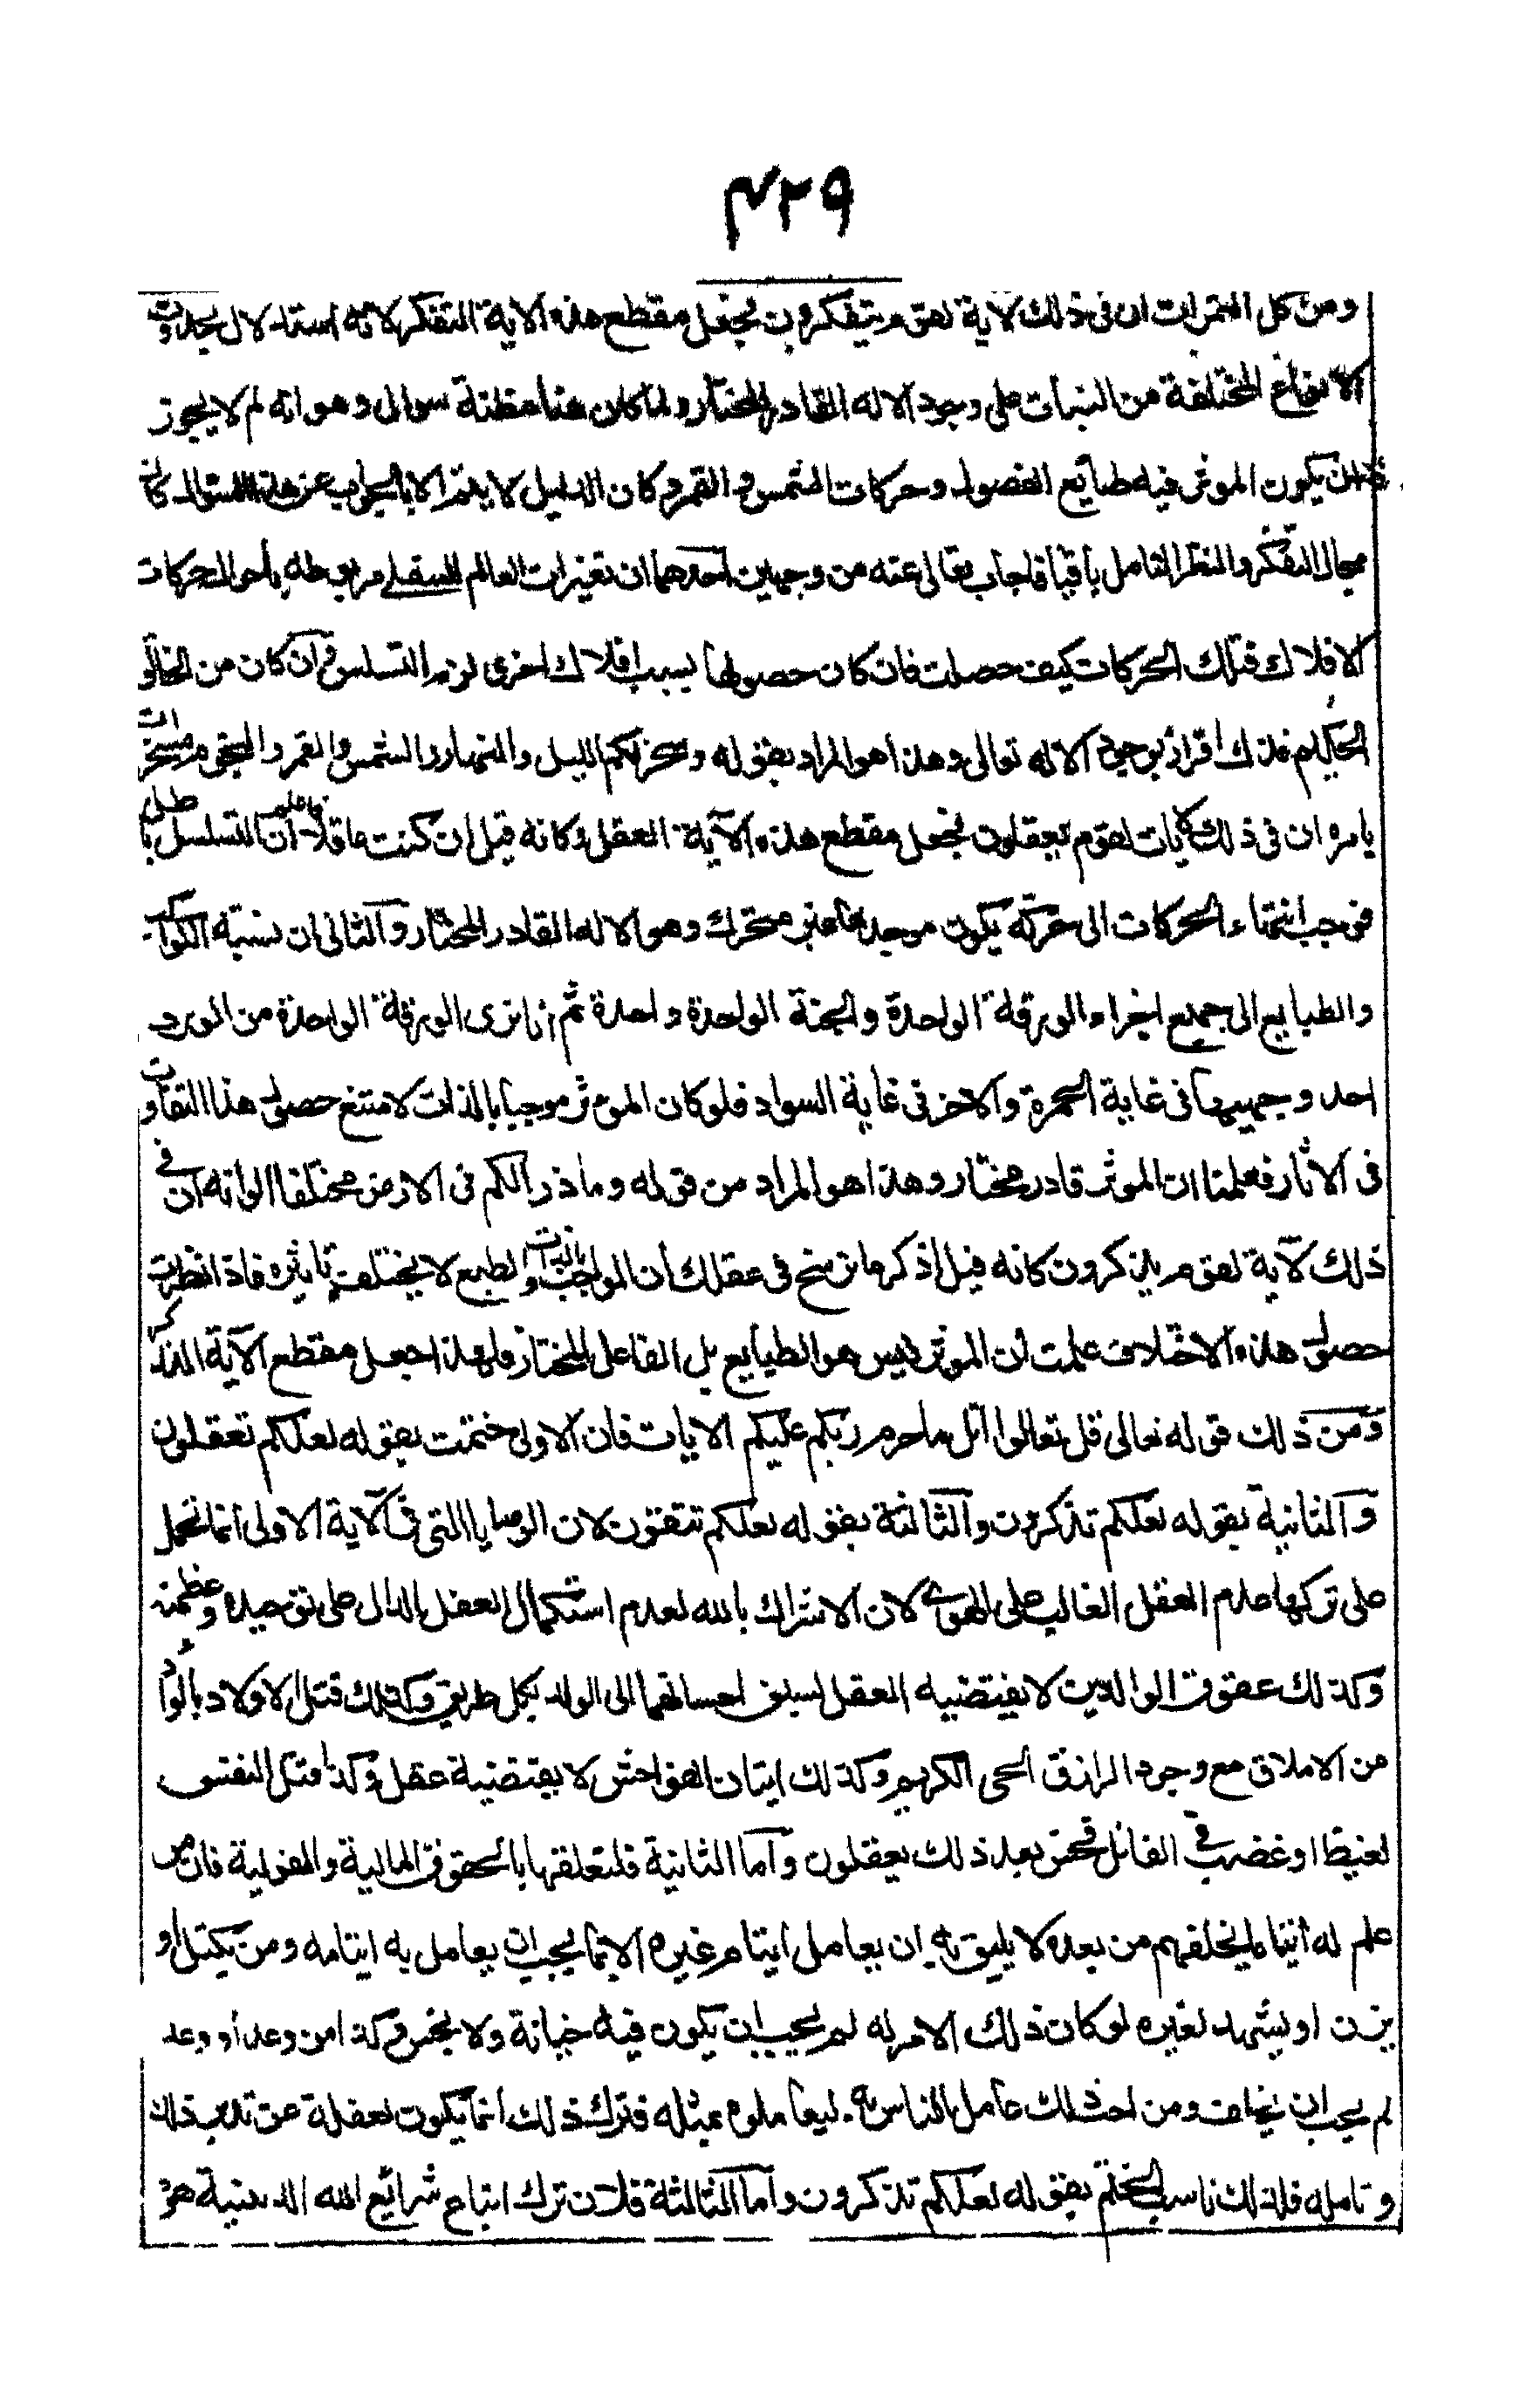 ٤٢٩
ومن كل الثمرات ان فى ذلك لاية لقوم يتفكرون فجعل مقطع هذه الاية التفكر لانه استدلال بحدوث
الانواع المختلفة من النبات على وجود الاله القادر المختار ولما كان هنا مظنة سوال وهو انه لم لا يجوز
ان يكون الموثر فيه طبائع الفصول وحركات الشمس والقمر وكان الدليل لا يتم الا بالجواب عن هذا السوال كان
مجال التفكر والنظر التامل باقيا فاجاب تعالى عنه من وجهين احدهما ان تغيرات العالم السفلى مربوطة باحوال حركات
الافلاك فتلك الحركات كيف حصلت فان كان حصولها بسبب افلاك اخرى لزم التسلسل وان كان من الخالق
الحكيم فذاك اقرار بوجود الاله تعالى وهذا هو المراد بقوله وسخر لكم الليل والنهار والشمس والقمر والنجوم مسخرات
بامره ان فى ذلك لايات لقوم يعقلون فجعل مقطع هذه الآية العقل وكانه قيل ان كنت عاقلا فاعلم ان التسلسل باطل
فوجب انتهاء الحركات الى حركة يكون موجدها غير متحرك وهو الاله القادر المختار والثانى ان نسبة الكواكب
والطبايع الى جميع اجزاء الورقة الواحدة والحبة الواحدة واحدة ثم انا نرى الورقة الواحدة من الورد
احد وجهيها فى غاية الحمرة والاخر فى غاية السواد فلو كان الموثر موجبا بالذات لامتنع حصول هذا التفاوت
فى الاثار فعلمنا ان الموثر قادر مختار وهذا هو المراد من قوله وما ذرا لكم فى الارض مختلفا الوانه ان فى
ذلك لآية لقوم يذكرون كانه قيل اذكر ما ترسخ فى عقلك ان الواجب بالذات والطبع لا يختلف تاثيره فاذا نظرت
حصول هذه الاختلاف علمت ان الموثر ليس هو الطبايع بل الفاعل المختار فلهذا جعل مقطع الآية التذكر
ومن ذلك قوله تعالى قل تعالوا اتل ما حرم ربكم عليكم الايات فان الاولى ختمت بقوله لعلكم تعقلون
والثانية بقوله لعلكم تذكرون والثالثة بقوله لعلكم تتقون لان الوصايا التى فى الآية الاولى انما تحمل
على تركها عدم العقل الغالب على الهوى لان الاشراك بالله لعدم استكمال العقل الدال على توحيده وعظمته
وكذلك عقوق الوالدين لا يقتضيه العقل لسبق احسانهما الى الولد بكل طريق وكذلك قتل الاولاد بالواد
من الاملاق مع وجود الرازق الحى الكريم وكذلك اتيان الفواحش لا يقتضية عقل وكذا قتل النفس
لغيظ او غضب فى القاتل فحسن بعد ذلك يعقلون واما الثانية فلتعلقها بالحقوق المالية والقولية فان من
علم له ايتاما يخلفهم من بعده لا يليق به ان يعامل ايتام غيره الا بما يجب ان يعامل به ايتامه ومن يكتل او
يزن او يشهد لغيره لو كان ذلك الامر له لم يحب ان يكون فيه خيانة ولا بخس وكذا من وعد او وعد
لم يحب ان يخلف ومن احب ذلك عامل الناس به ليعاملوه بمثله فترك ذلك انما يكون لغفلة عن تدبر ذلك
وتامله فلذلك ناسب الختم بقوله لعلكم تذكرون واما الثالثة فلان ترك اتباع شرائع الله الدينية